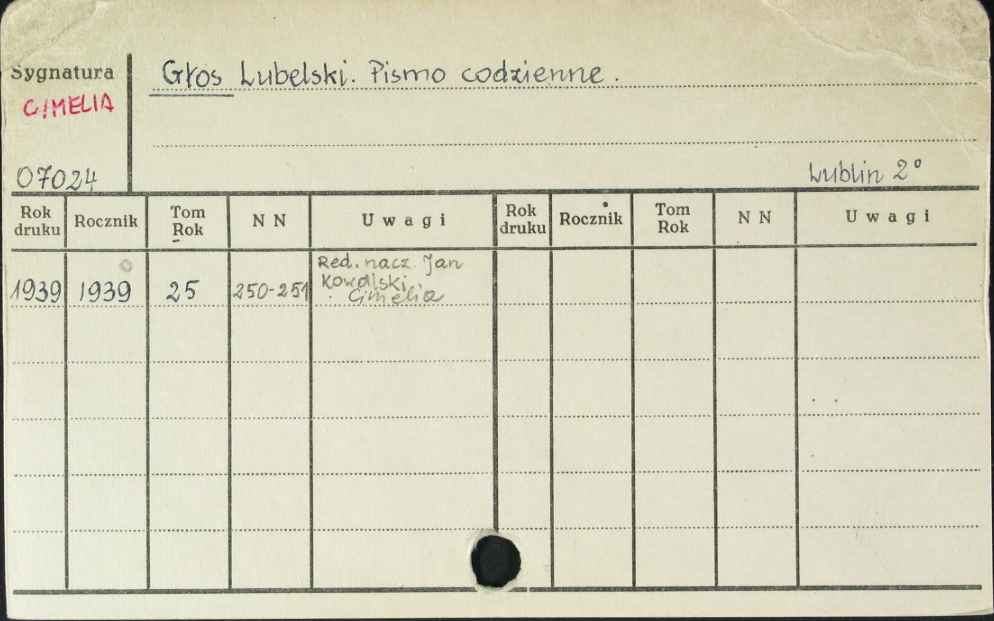 Sygnatura
Głos Lubelski. Pismo codzienne.
CIMELIA
07024
Lublin 2°
Rok druku Rocznik Tom Rok N N Uwagi Rok druku Rocznik Tom Rok N N Uwagi
1939 1939 25 250-251 Red. nacz. Jan
Kowalski.
Cimelia